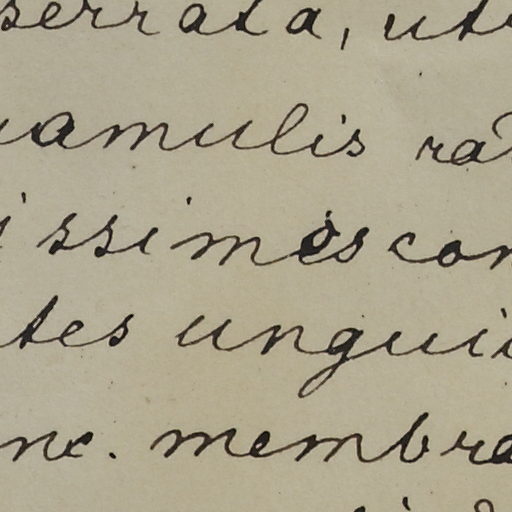 serrata, ut
amulis ra
issimes con
tes ungui
nc. membra